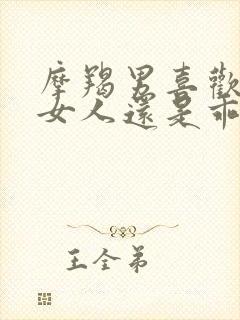 摩羯男喜歡
女人還是乖
王全弟